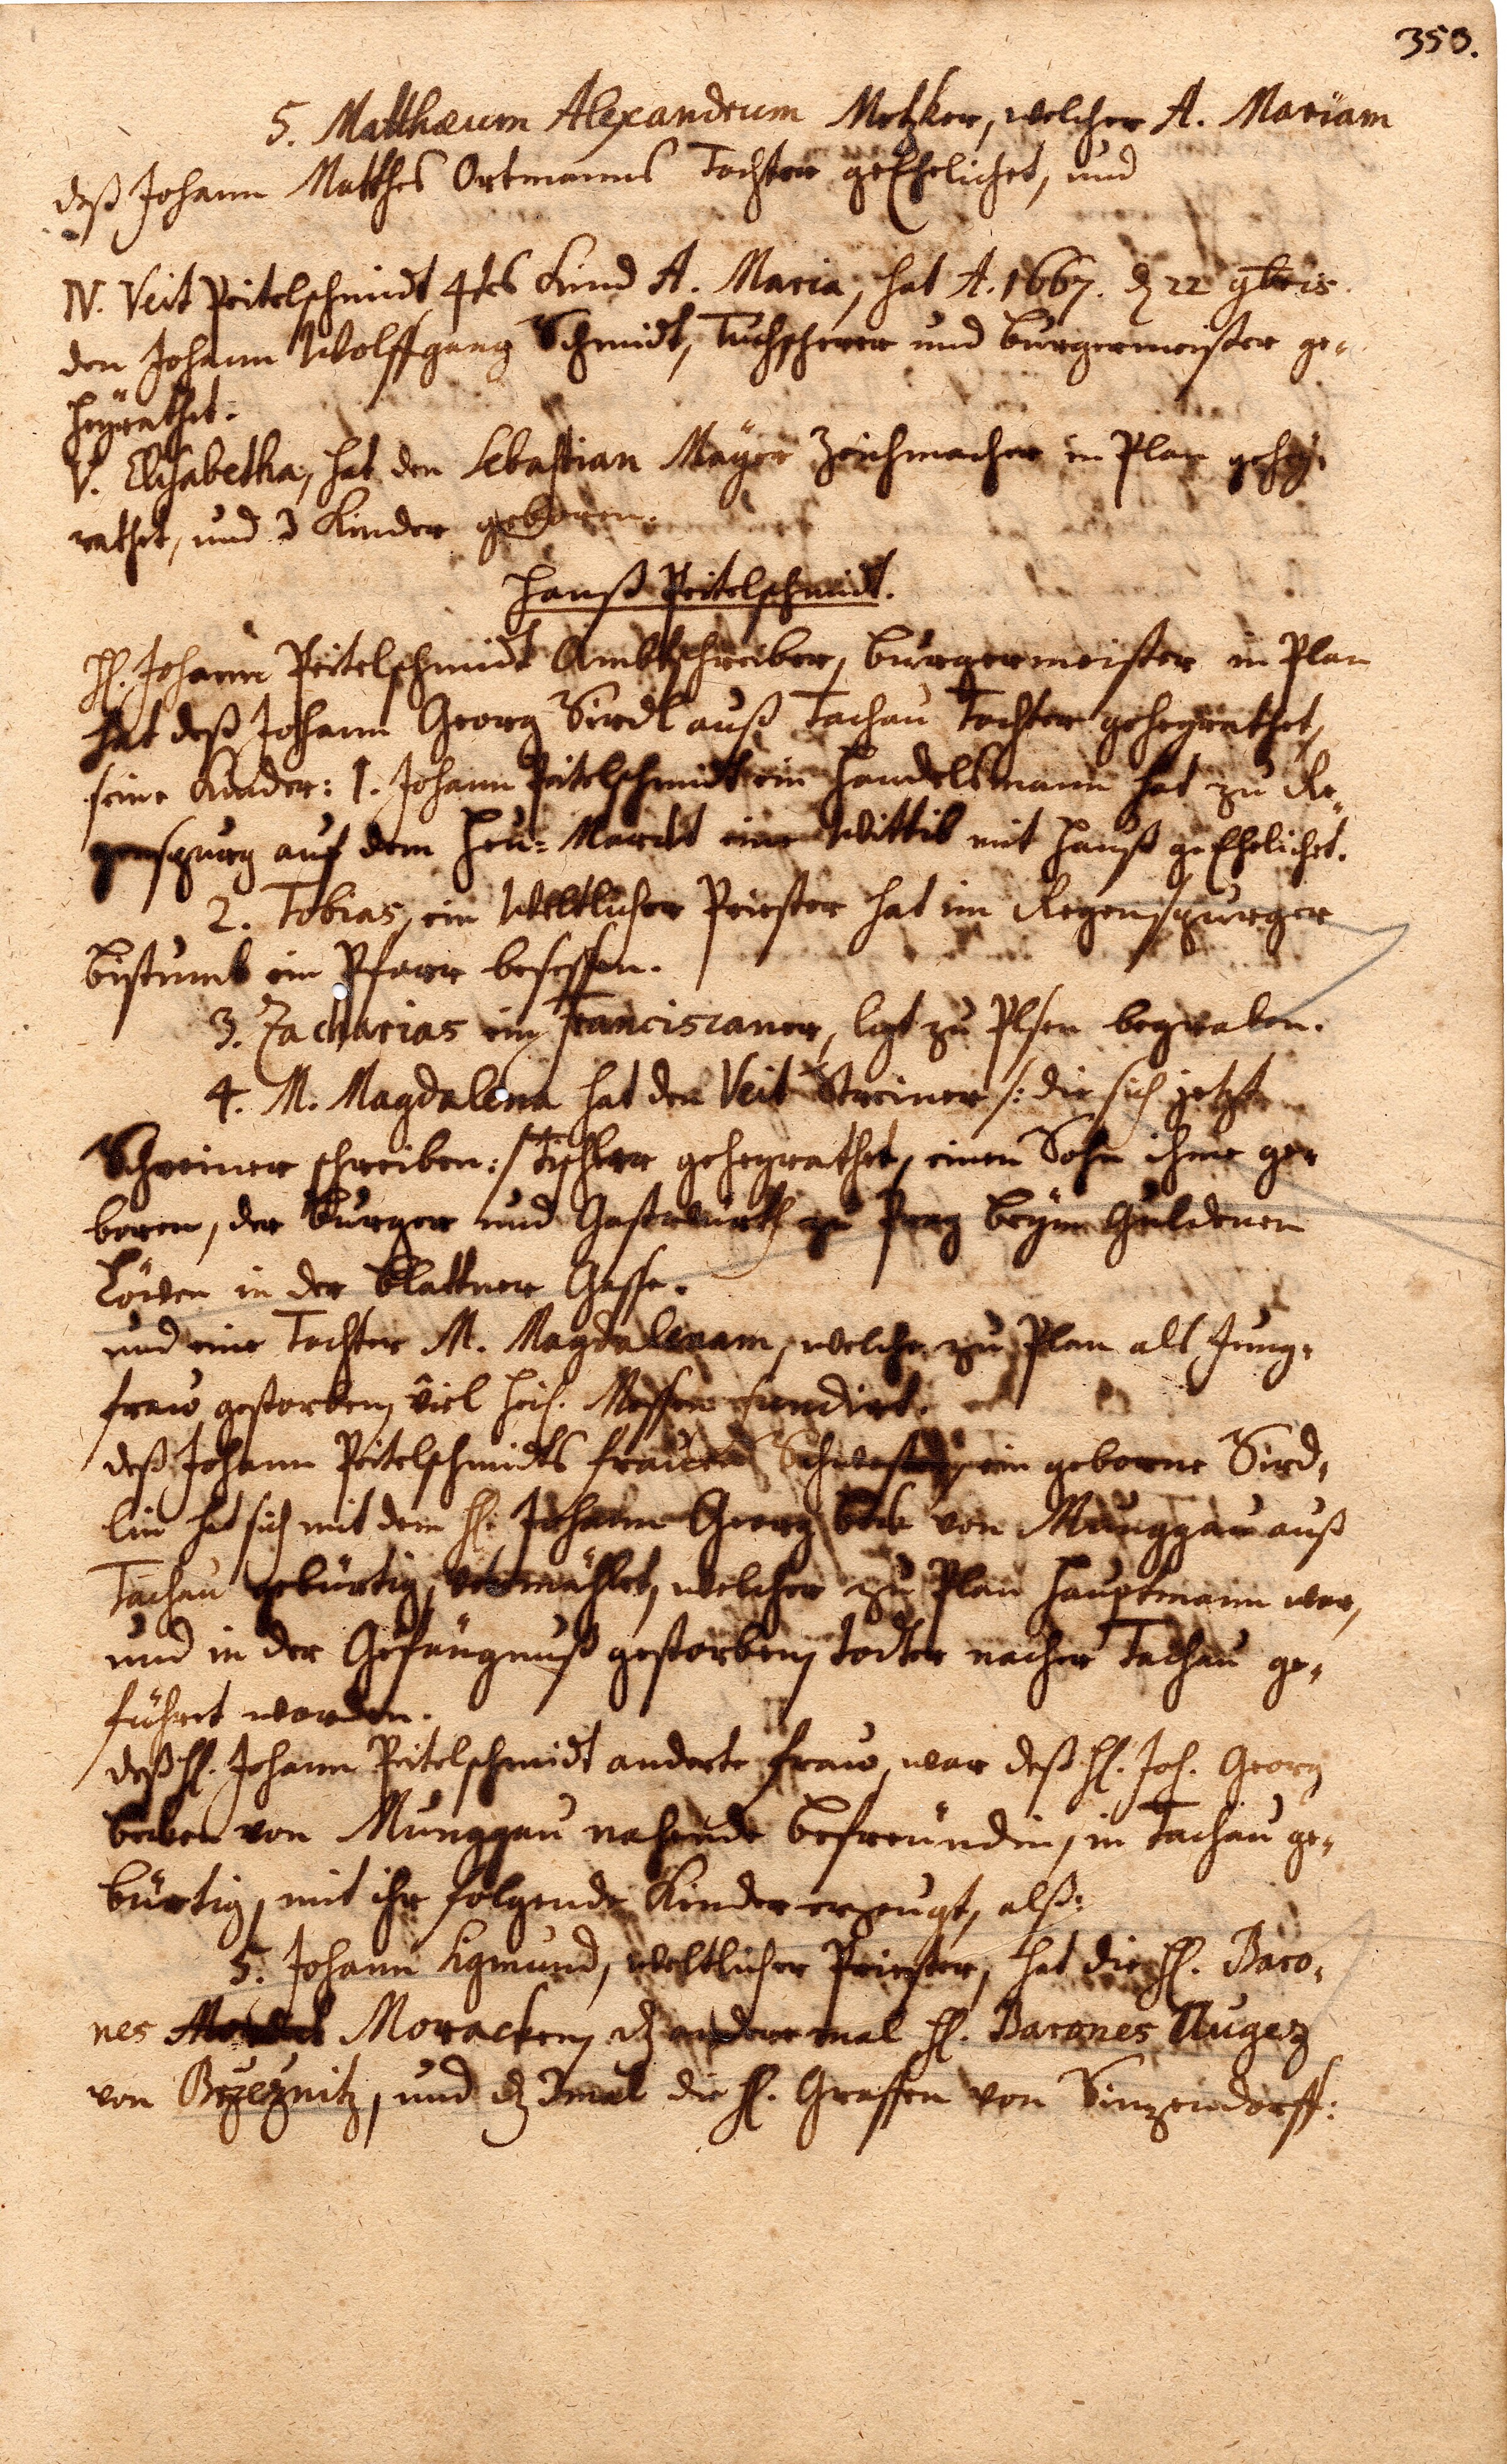 353.
5. Matthæum Alexandrum Metzker, welcher A. Mariam
deß Johann Matthes Ortmanns Tochter geEhelichet, und
IV. Veit Peitelschmidt 4tes Kind A. Maria, hat A. 1667. d 22 9bris
den Johann Wolffgang Schmidt, Tuchscherer und Burgermeister ge-
heÿrathet.
V. Elisabetha, hat den Sebastian Maÿer Zeichmacher in Plan gehey-
rathet, und 3 Kinder geboren.
Hanß Peitelschmidt.
H. Johann Peitelschmidt Ambtschreiber, Burgermeister in Plan
hat deß Johann Georg Sirdl auß Tachau Tochter geheyrathet,
seine Kinder: 1. Johann Peitelschmidt ein Handelsmann hat zu Re-
genspurg auf dem Heu-Marckt eine Wittib mit Hauß geEhelichet.
2. Tobias, ein Weltlicher Priester hat im Regenspurger
Bistumb ein Pfarr besessen.
3. Zacharias ein Franciscaner, ligt zu Plsen begraben.
4. M. Magdalena hat den Veit Streiner /: die sich jetzt
Schreiner schreiben :/ Tischler geheyrathet, einen Sohn ihme ge-
boren, der Burger und Gastwürth zu Prag beÿm Guldenen
Löwen in der Blattner Gasse.
und eine Tochter M. Magdalenam, welche zu Plan als Jung-
fraw gestorben, viel heil. Messen fundirt.
deß Johann Peitelschmidts frauen Schwester, ein geborne Sird-
lin hat sich mit dem H. Johann Georg Beck von Munggau auß
Tachau gebürtig, vermählet, welcher zu Plan Hauptmann war,
und in der Gefängnuß gestorben, todter nacher Tachau ge-
führt worden.
deß H. Johann Peitelschmidt anderte fraw, war deß H. Joh. Georg
Becken von Munggau nahende befreündin, in Tachau ge-
bürtig, mit ihr folgende Kinder erzeugt, alß:
5. Johann Sigmund, weltlicher Priester, hat die H. Baro-
nes Moracken, d andere mal H. Barones Augez
von Brzeznitz, und d 3mal die H. Graffen von Sinzendorff: